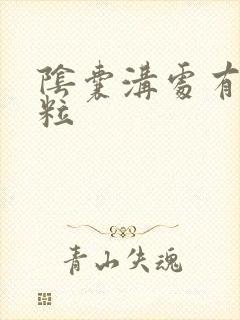 陰囊溝處有
粒
青山失魂